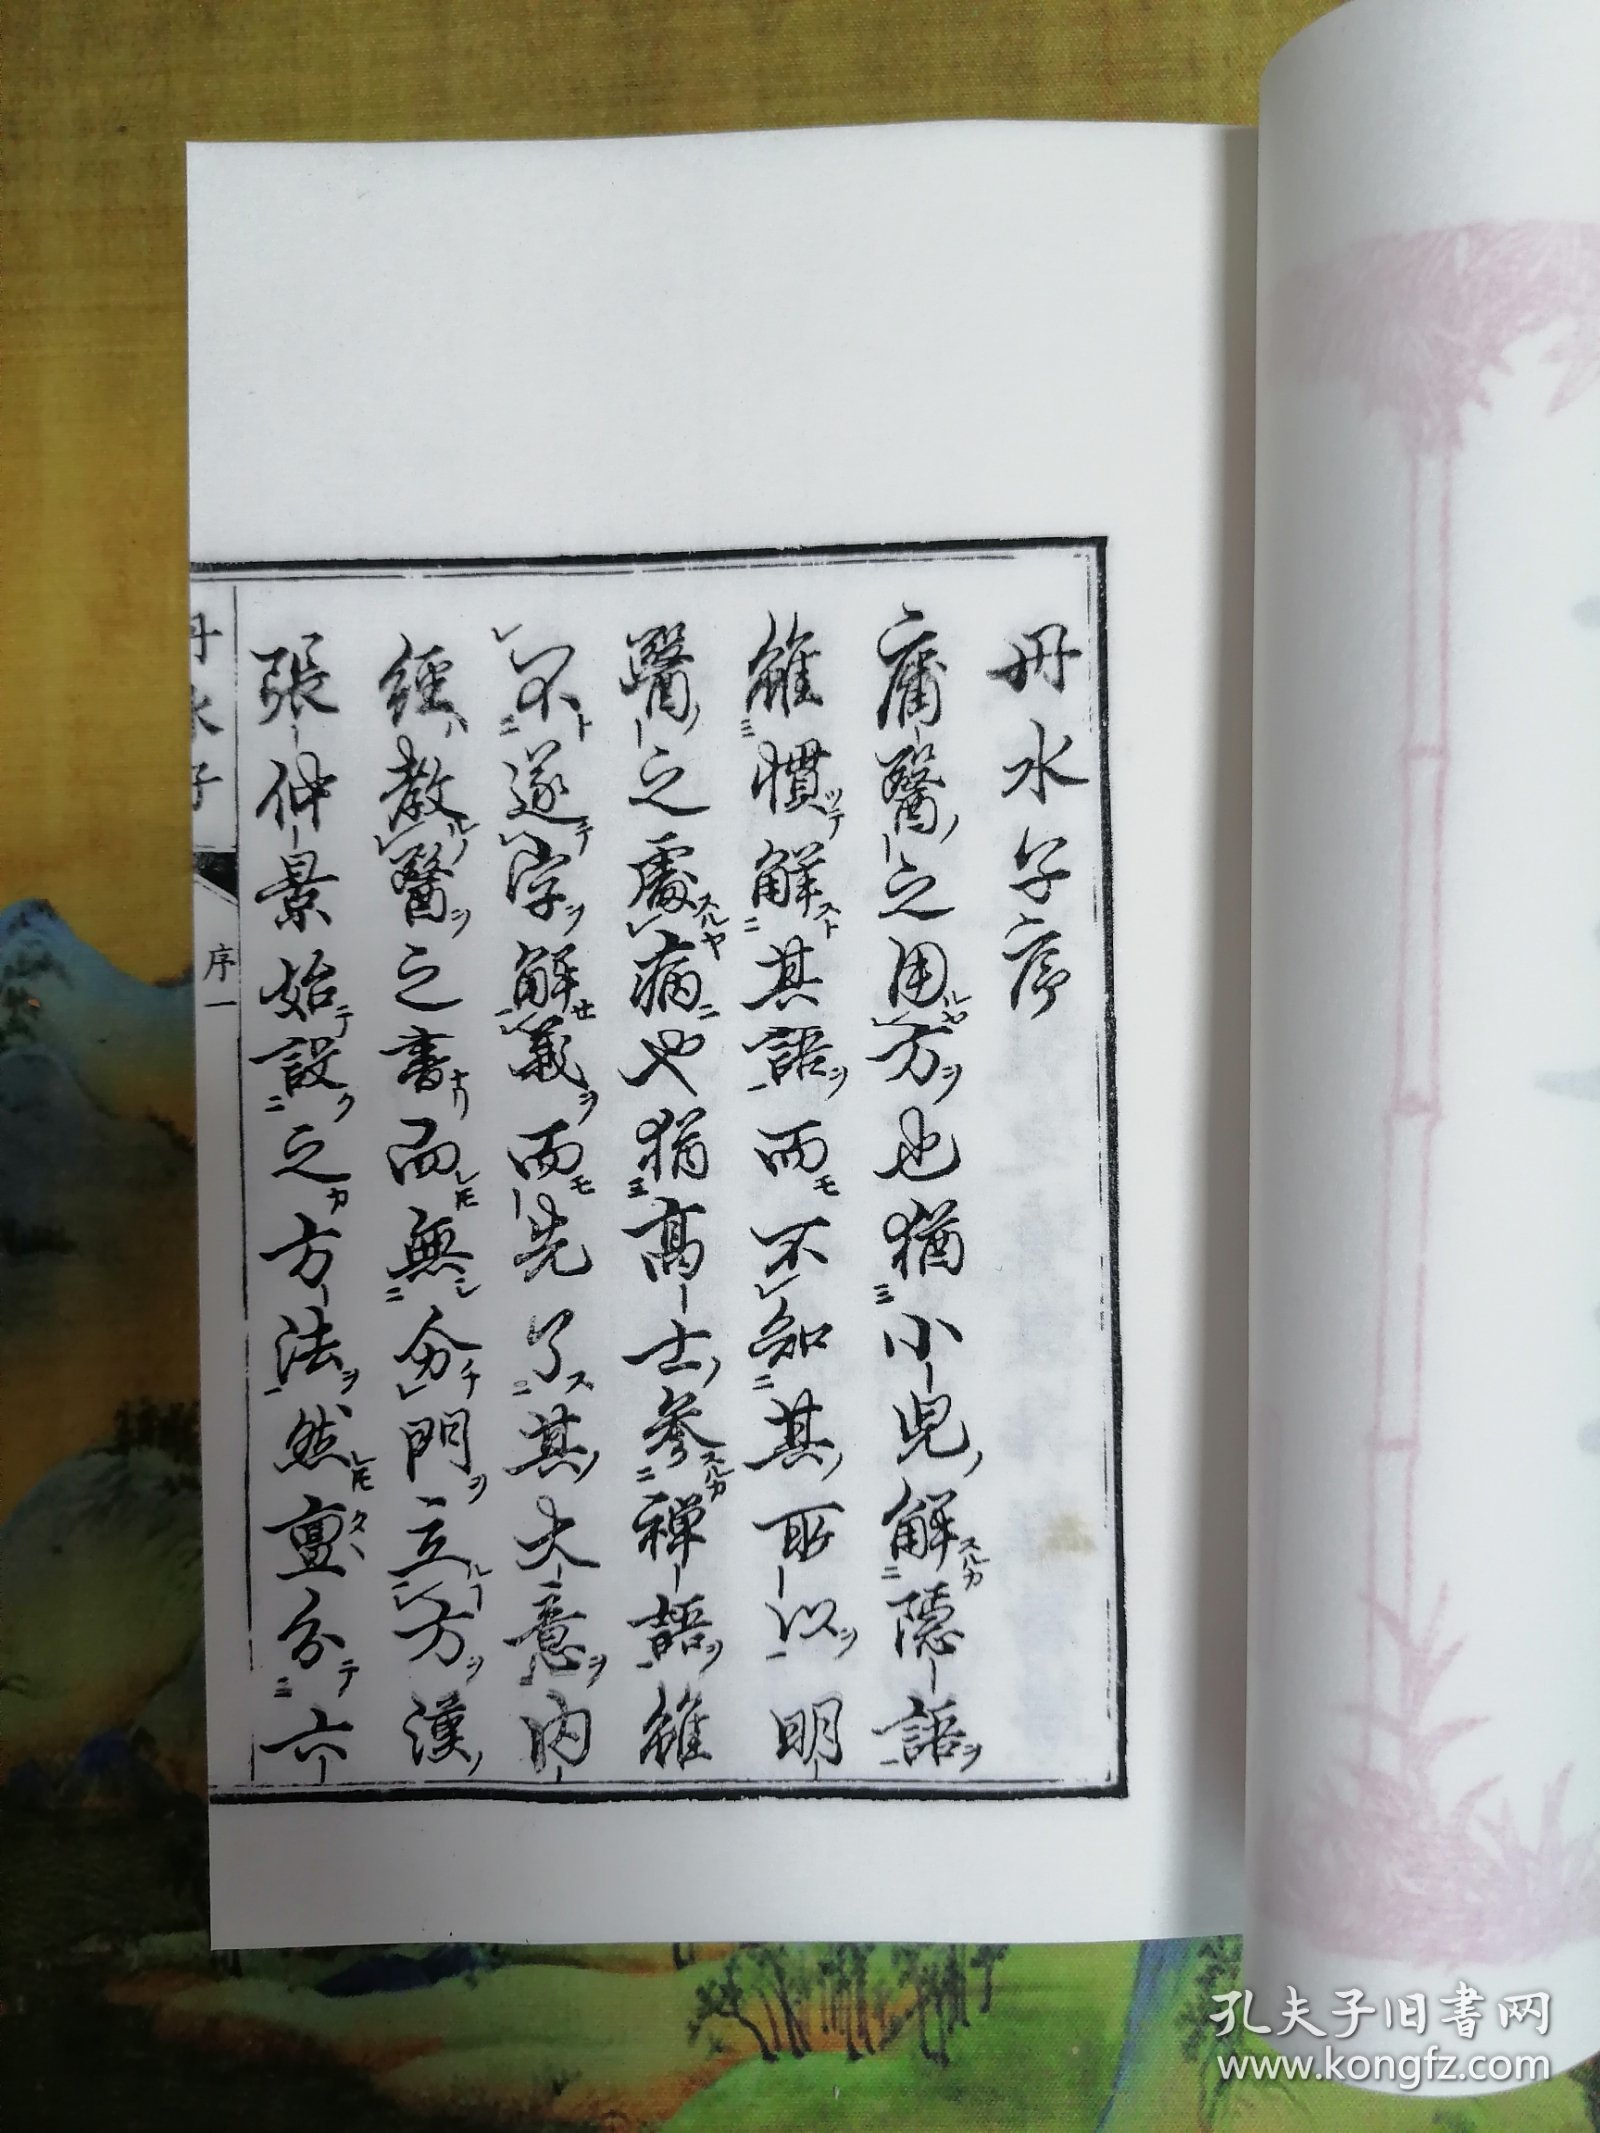 丹水子序
庸醫之用方也猶小兒解隱語
雖慣解其語而不知其所以明
醫之處病也猶高士參禪語雖
不逐字解義而先了其大意内
經教醫之書而無分門立方漢
張仲景始設之方法然亶分六
丹水子
序一
孔夫子旧书网
www.kongfz.com